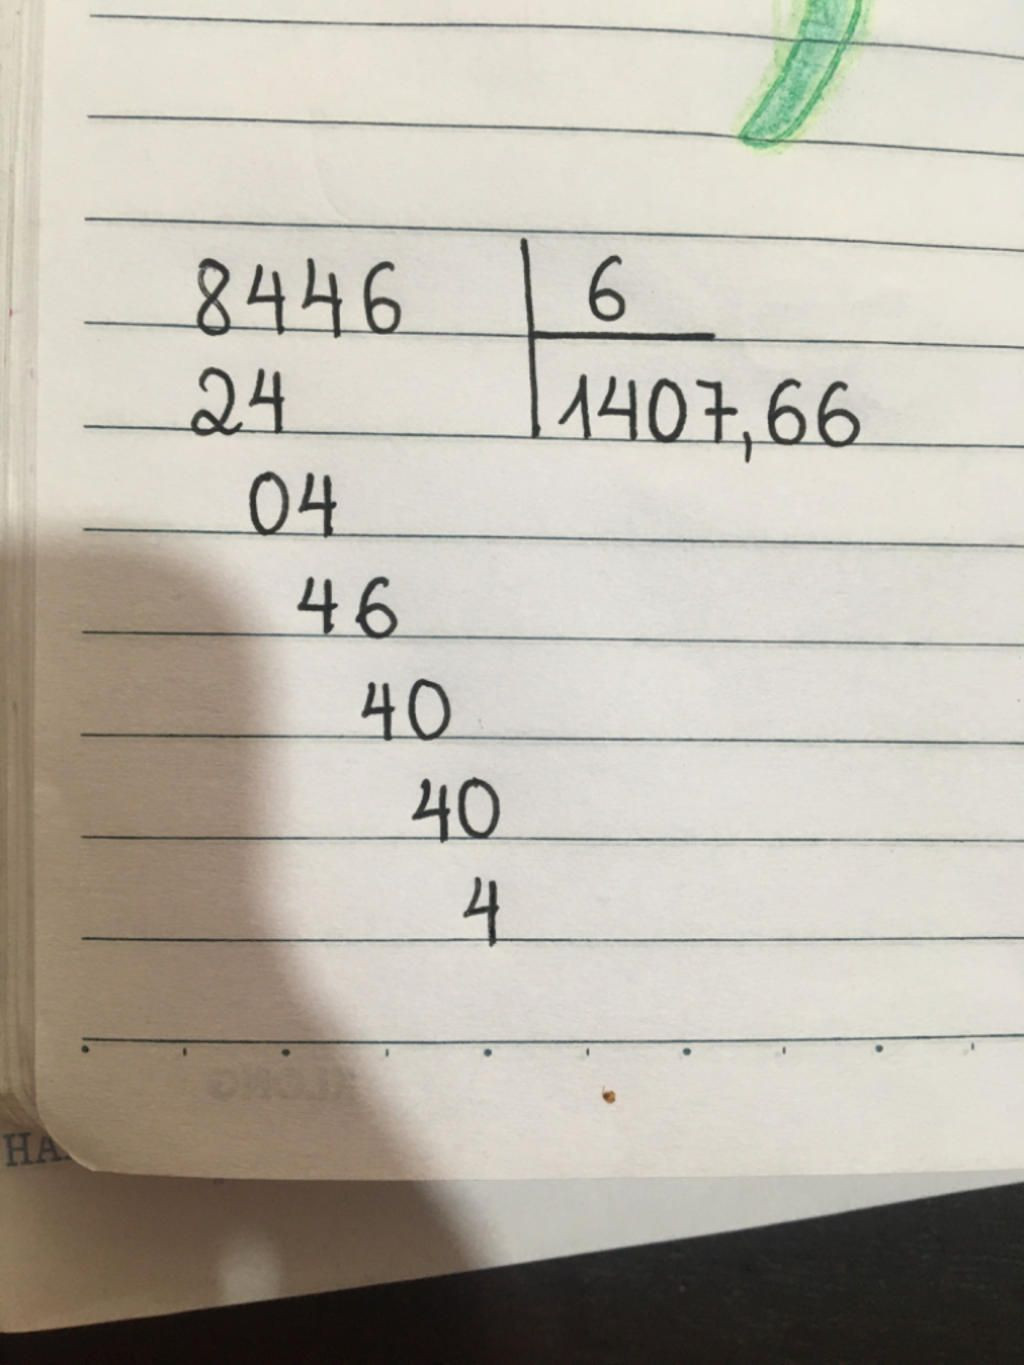 8446 6
24 1407,66
04
46
40
40
4
HA